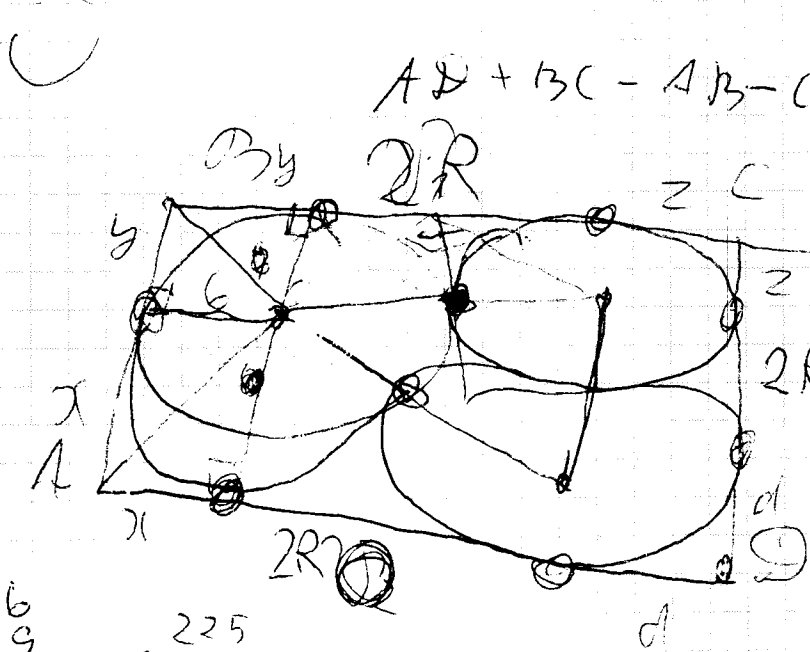 AD + BC - AB - C
By 2R
z C
y
z
6
2R
x
A
d
x 2R D
6
9 225
d